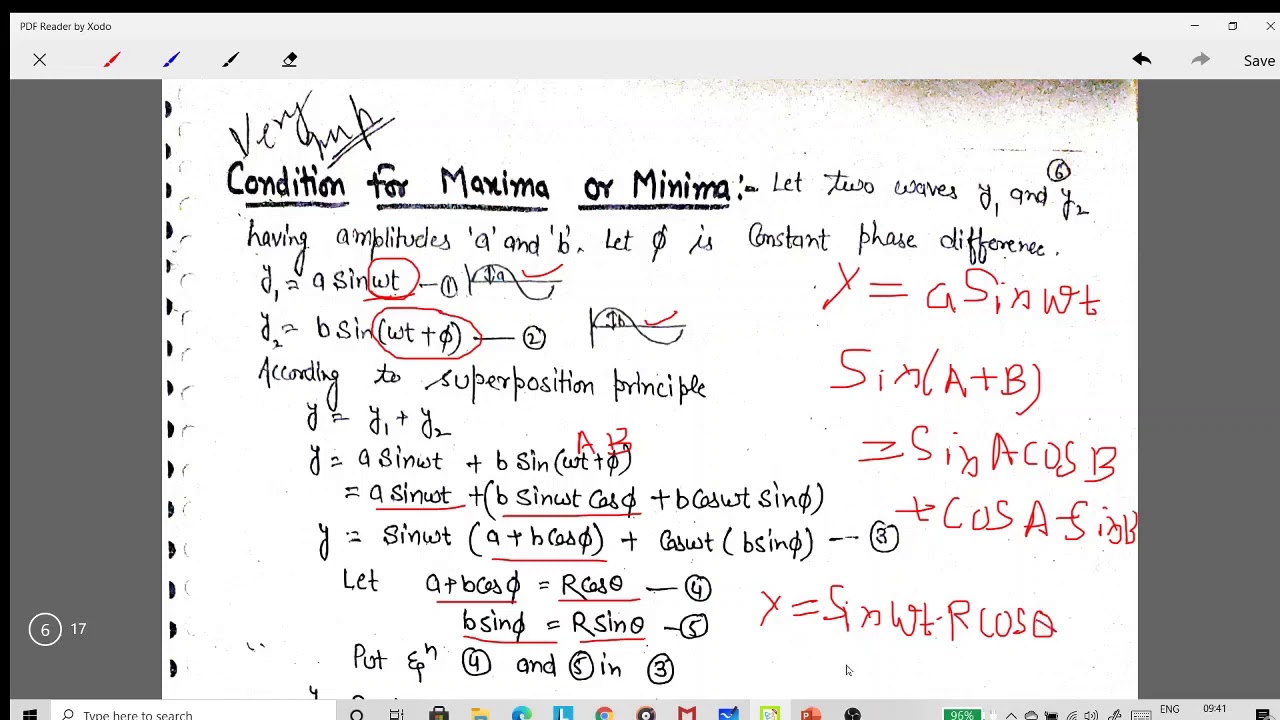 PDF Reader by Xodo
Save
Very Imp
Condition for Maxima or Minima:- Let two waves y₁ and y₂
⑥
having amplitudes 'a' and 'b'. Let ϕ is Constant phase difference.
y₁ = a sinwt —①
a
y₂ = b sin(wt+ϕ) —②
b
According to superposition principle
y = y₁ + y₂
A B
y = a sinwt + b sin(wt+ϕ)
= a sinwt +(b sinwt cosϕ + b coswt sinϕ)
y = sinwt (a+bcosϕ) + coswt (bsinϕ) —③
Let a+bcosϕ = Rcosθ —④
bsinϕ = Rsinθ —⑤
Put Eqⁿ ④ and ⑤ in ③
y
Y = a Sin wt
Sin(A+B)
= Sin A cos B
+ Cos A Sin B
Y = Sin wt. R Cos θ
6 17
Type here to search
96%
ENG
09:41